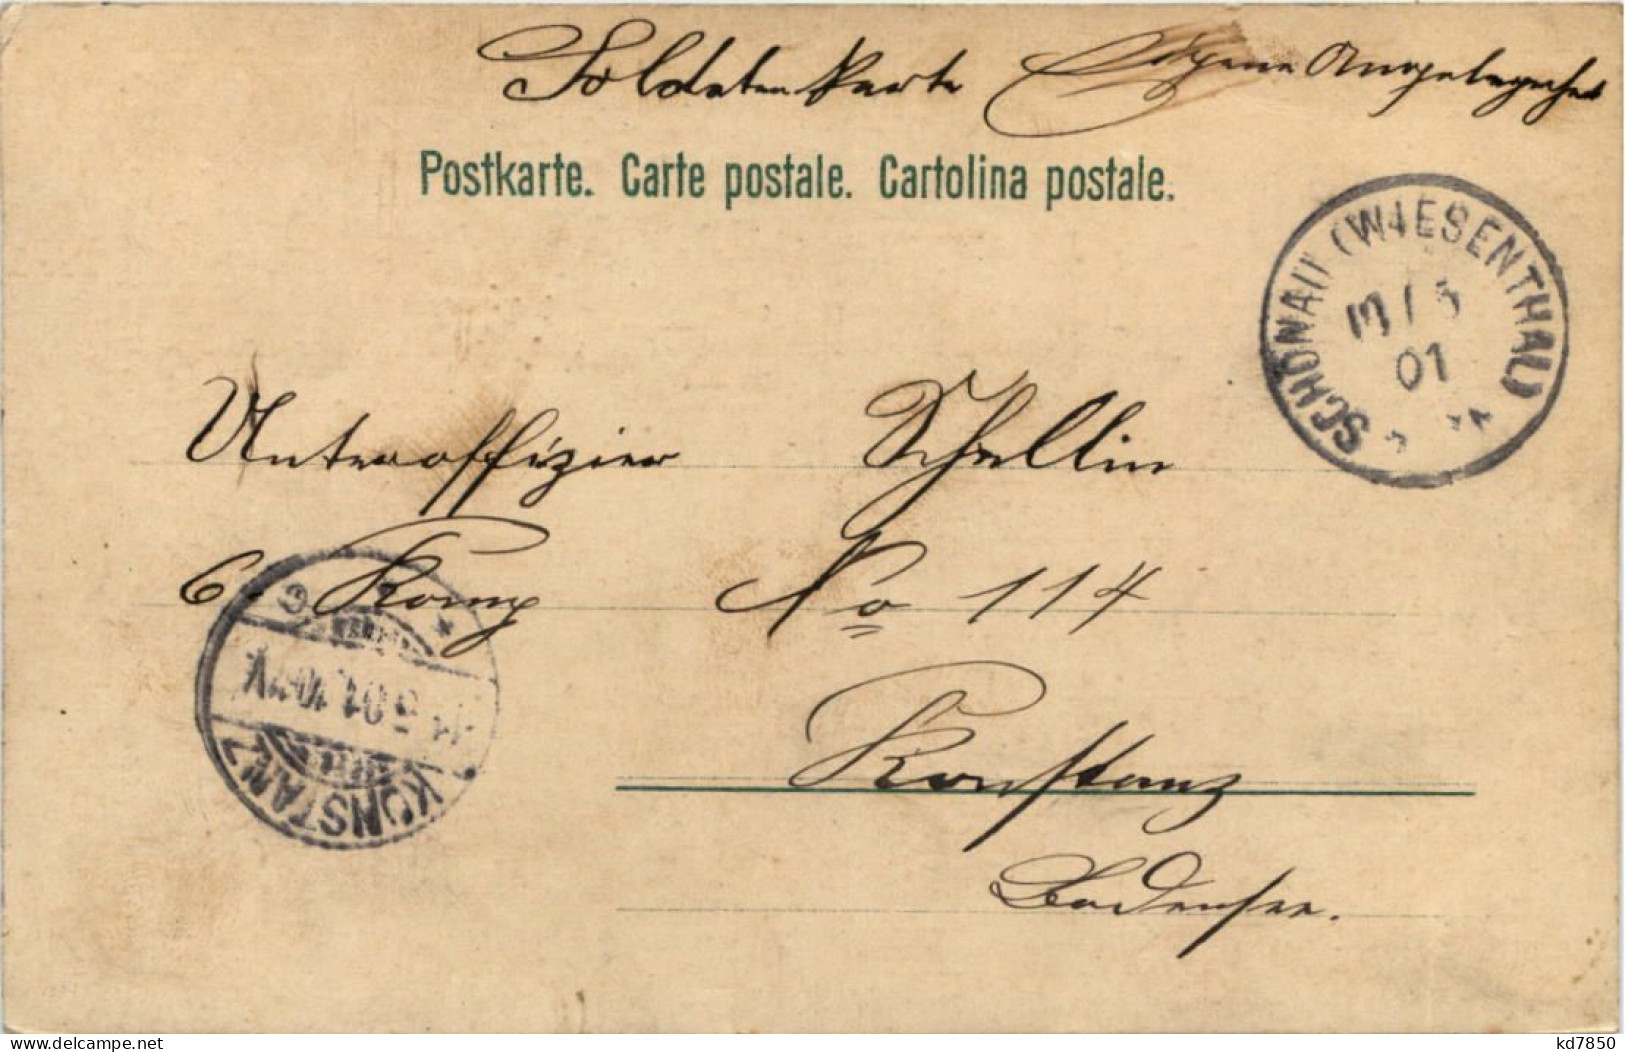 Soldatenkarte Eigene Angelegenheit
Postkarte. Carte postale. Cartolina postale.
SCHÖNAU (WIESENTHAL)
01
Unteroffizier Schellin
6 Komp No 114
KONSTANZ
Konstanz
Bodensee.
kd7850